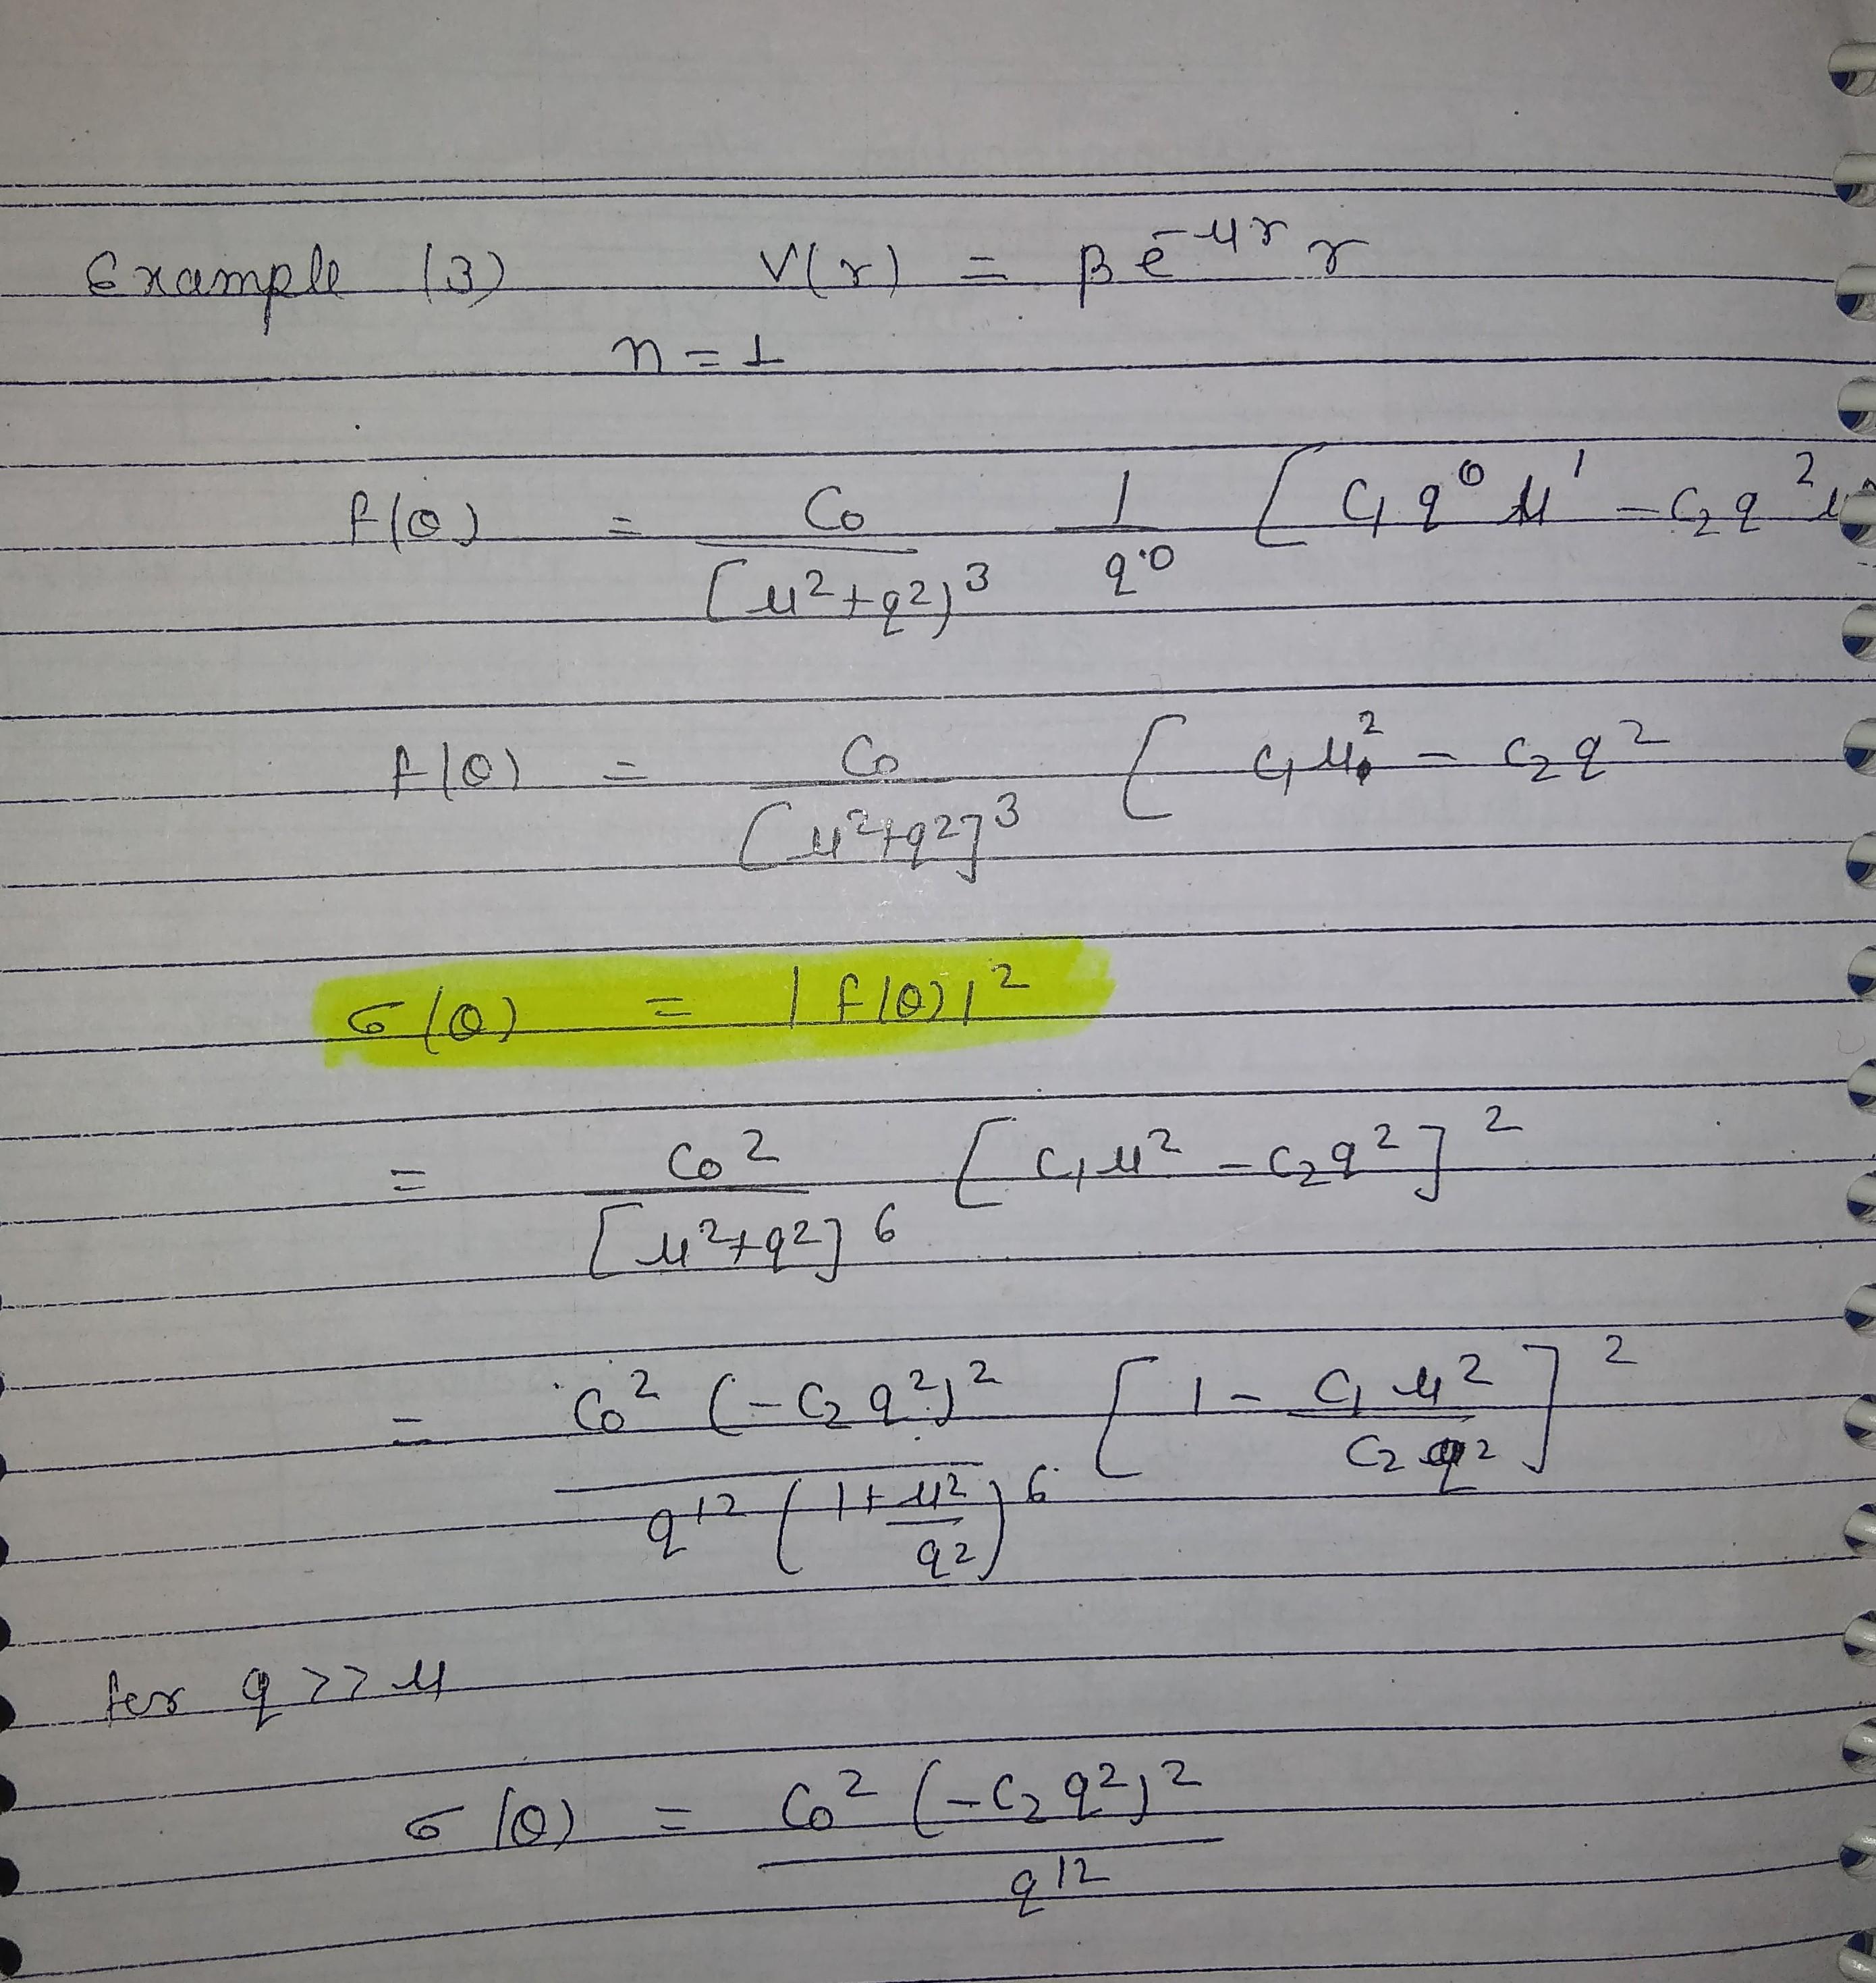 Example (3) V(r) = β e^{-μr} r
n = 1
f(θ) = C₀ / [μ²+q²)³ 1 / q⁰ [ C₁ q⁰ μ¹ - C₂ q²
f(θ) = C₀ / [μ²+q²]³ [ C₁ μ² - C₂ q²
σ(θ) = |f(θ)|²
= C₀² / [μ²+q²]⁶ [ C₁ μ² - C₂ q² ]²
= C₀² (-C₂ q²)² / q¹² (1 + μ²/q²)⁶ [ 1 - C₁ μ² / C₂ q² ]²
for q >> μ
σ(θ) = C₀² (-C₂ q²)² / q¹²